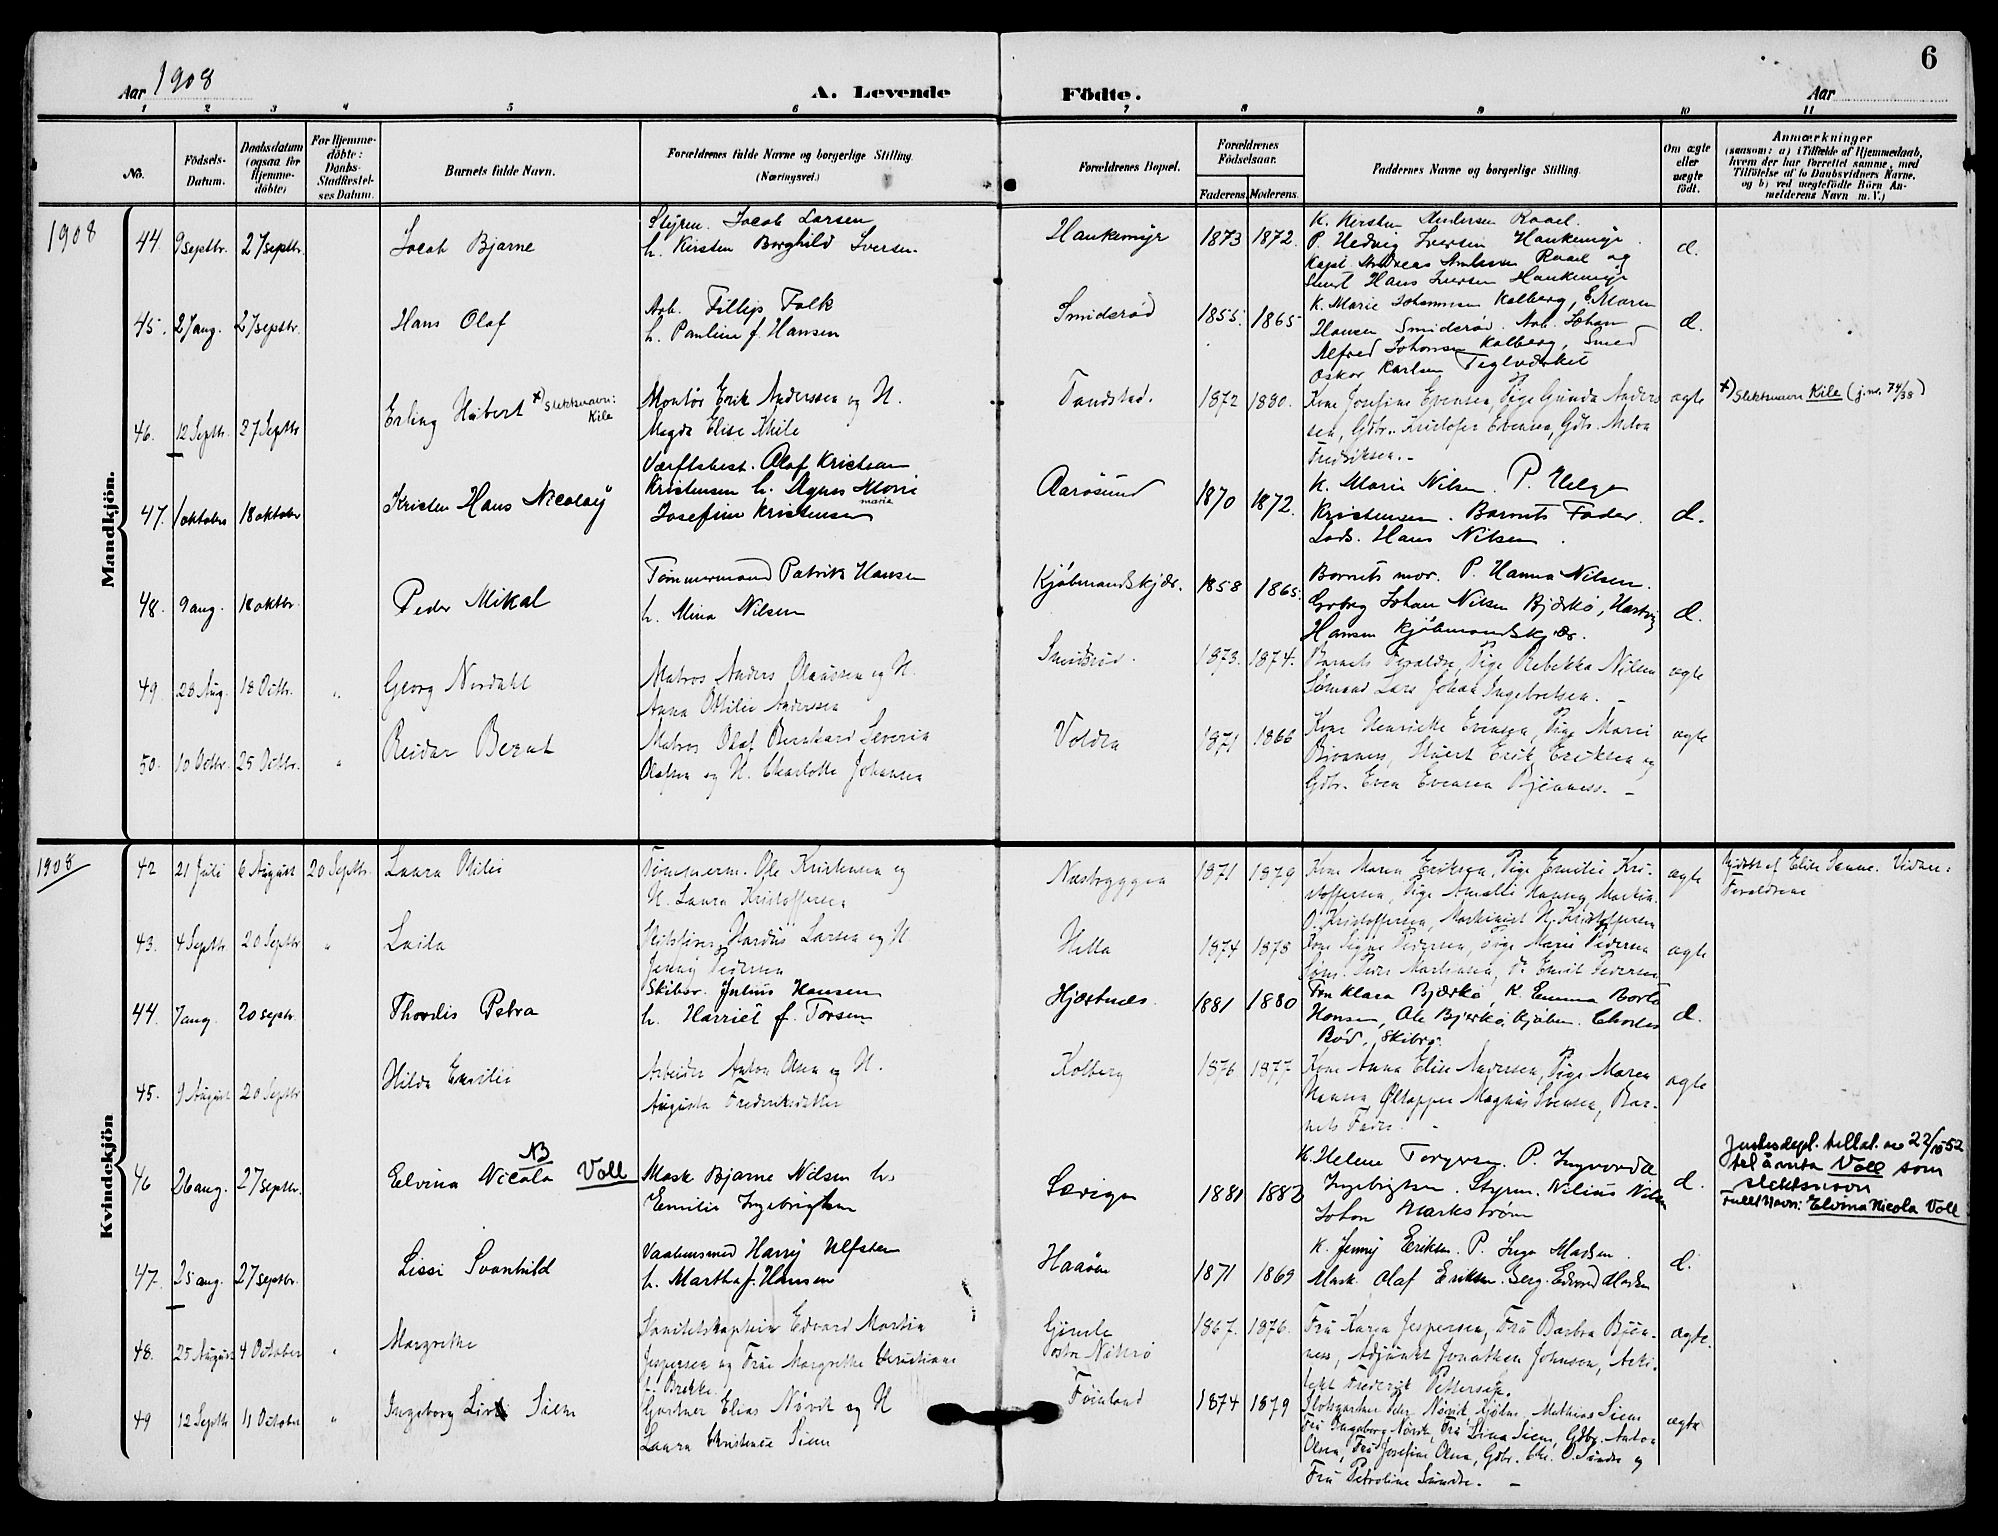 6
Aar 1908
A. Levende Födte.
Aar
1 2 3 4 5 6 7 8 9 10 11
No.
Födsels-Datum.
Daabsdatum (ogsaa for Hjemme-döbte)
For Hjemme-döbte: Daabs-Stadfæstel-ses Datum.
Barnets fulde Navn.
Forældrenes fulde Navne og borgerlige Stilling.
(Næringsvei.)
Forældrenes Bopæl.
Forældrenes Födselsaar.
Faderens. Moderens.
Faddernes Navne og borgerlige Stilling.
Om ægte eller uægte födt.
Anmærkninger
(saasom: a) i Tilfælde af Hjemmedaab,
hvem der har forrettet samme, med
Tilföielse af to Daabsvidners Navne,
og b) ved uægtefödte Börn An-
melderens Navn m. V.)
Mandkjön.
1908
44. 9 septbr. 27 septbr. Jacob Bjarne
Styrm. Jacob Larsen
h. Kirsten Borghild Iversen
Haukemyr 1873 1872.
K. Kirsten Andersen
P. Hedvig Iversen Haukemyr.
Kapt. Andreas og
Hans Iversen Haukemyr
d.
45. 27 aug. 27 septbr. Hans Olaf
Arb. Fillip Falk
h. Pauline f. Hansen
Smiderød 1855. 1865
K. Marie Johannesen Kalberg, E. Maren
Hansen Smiderød. Arb. Johan
Alfred Johansen Kalberg, Smed
Oskar Karlsen Teglværket
d.
46. 12 Septbr. 27 Septbr. Erling Hubert x) slektsnavn: Kile
Montør Erik Anderssen og H.
Magda Elise Khile
Tandstad. 1872 1880.
Kone Josefine Evensen, Pige Gunda Anders
sen, Gdbr. Kristofer Evensen, Gdbr. Anton
Fredriksen. –
ægte
x) Slektsnavn Kile (j.nr. 74/38)
47. 1 oktober 18 oktober Kristen Hans Nicolay
Værftsbest. Olaf Kristian
Kristensen h. Agnes Marie
maria
Josefine Kristensen
Aarøsund 1870 1872.
K. Marie Nilsen. P. Helga
Kristensen. Barnets Fader.
Lods. Hans Nilsen.
d.
48. 9 aug. 18 oktbr. Peder Mikal
Tømmermand Patrik Hansen
h. Mina Nilsen
Kjøbmandskjær. 1858 1865.
Barnets mor. P. Hanna Nilsen.
Johan Nilsen Bjærkø, Hartvig
Hansen Kjøbmandskjær.
d.
49. 28 Aug. 18 Octbr. " Georg Nordahl
Matros Anders Olaussen og H.
Anna Otilie Anderssen
Smidsrød. 1873. 1874.
Barnets Forældre, Pige Rebekka Nilsen
Sømand Lars Johan Ingebretsen. –
ægte
50. 10 Octbr. 25 Octbr. " Reidar Bernt
Matros Olaf Bernhard Severin
Olafsen og H. Charlotte Johansen
Volden 1871 1866
Kone Henriette Evensen, Pige Marie
Bjønnes, Stuert Erik Eriksen og
Gdbr. Even Evensen Bjønness. –
ægte
Kvindekjön
1908
42 21 Juli 6 August 20 Septbr. Laura Otilie
Tømmerm. Ole Kristensen og
H. Laura Kristoffersen
Næsbryggen 1871 1879
Kone Maren Eriksen, Pige Emilie Kri-
stoffersen, Pige Amalie Hansen, Maskin.
O. Kristoffersen, Maskinist H. Kristoffersen
ægte
Hjdøbt af Elise Sanne. Vidner: Forældrene
43. 4 Septbr. 20 Septbr. " Laila
Hardus Larsen og H.
Jenny Pedersen
Hella 1874 1878
Kone Signe Pedersen, Pige Marie Pedersen
Søm. Peder Martinsen, Do Emil Pedersen
ægte
44. 7 aug. 20 septbr. Thordis Petra
Skibsr. Julius Hansen
h. Harriet f. Torsen
Hjæstnes. 1881 1880
Fru Klara Bjærkø, K. Emma
Hansen, Ole Bjærkø, Kjøbm. Charles
Bød, Skibsr.
d.
45. 9 August 20 Septbr. Hilda Emilie
Arbeider Anton Olsen og H.
Augusta Frederiksdatter
Kolberg 1876 1877
Kone Anna Elise Andersen, Pige Maren
Hansen Øltapper Magnus Svensen, Bar-
nets Fader. –
ægte
46 26 aug. 27 septbr. Elvina Nicola NB Voll
Mask. Bjarne Nilsen h.
Emilie Ingebrigtsen
Sevigen 1881 1882
K. Helene Torgersen. P. Ingvarda
Ingebrigtsen. Styrm. Nilius Nilsen
Johan Markstrøm
d.
Justisdepl. tillat. av 22/10 52
til å anta Voll som
slektsnavn
Fullt Navn: Elvina Nicola Voll
47. 25 aug. 27 septbr. Lissi Svanhild
Vaabensmed Harry Ulfsten
h. Martha f. Hansen
Haaøen 1871 1869
K. Jenny Eriksen. P. Inga Madsen.
Mask. Olaf Eriksen. Serg. Edvard Madsen
d.
48. 25 August 4 October " Margrethe
Sanitetskaptein Edvard Martin
Jespersen og Frue Margrethe Christiane
f. Brekke.
Gimle
Vestre Nøtterø
1867. 1876.
Fru Karen Jespersen, Fru Barbra Bjøn-
ness, Adjunkt Jonathan Johnsen, Arki-
tekt Frederik Pettersen.
ægte.
49 12 Septbr. 11 October " Ingeborg Siem
Gartner Elias Nøvik og H
Laura Christense Siem
Føinland 1874 1879
Slotsgartner Peder Nøvik, Kjøbm. Mathias Siem
Fru Ingeborg Nøvik, Fru Lina Siem, Gdbr. Anton
Olsen, Fru Josefine Olsen, Gdbr. Chr. O. Sundre og
Fru Petroline Sundre. –
ægte